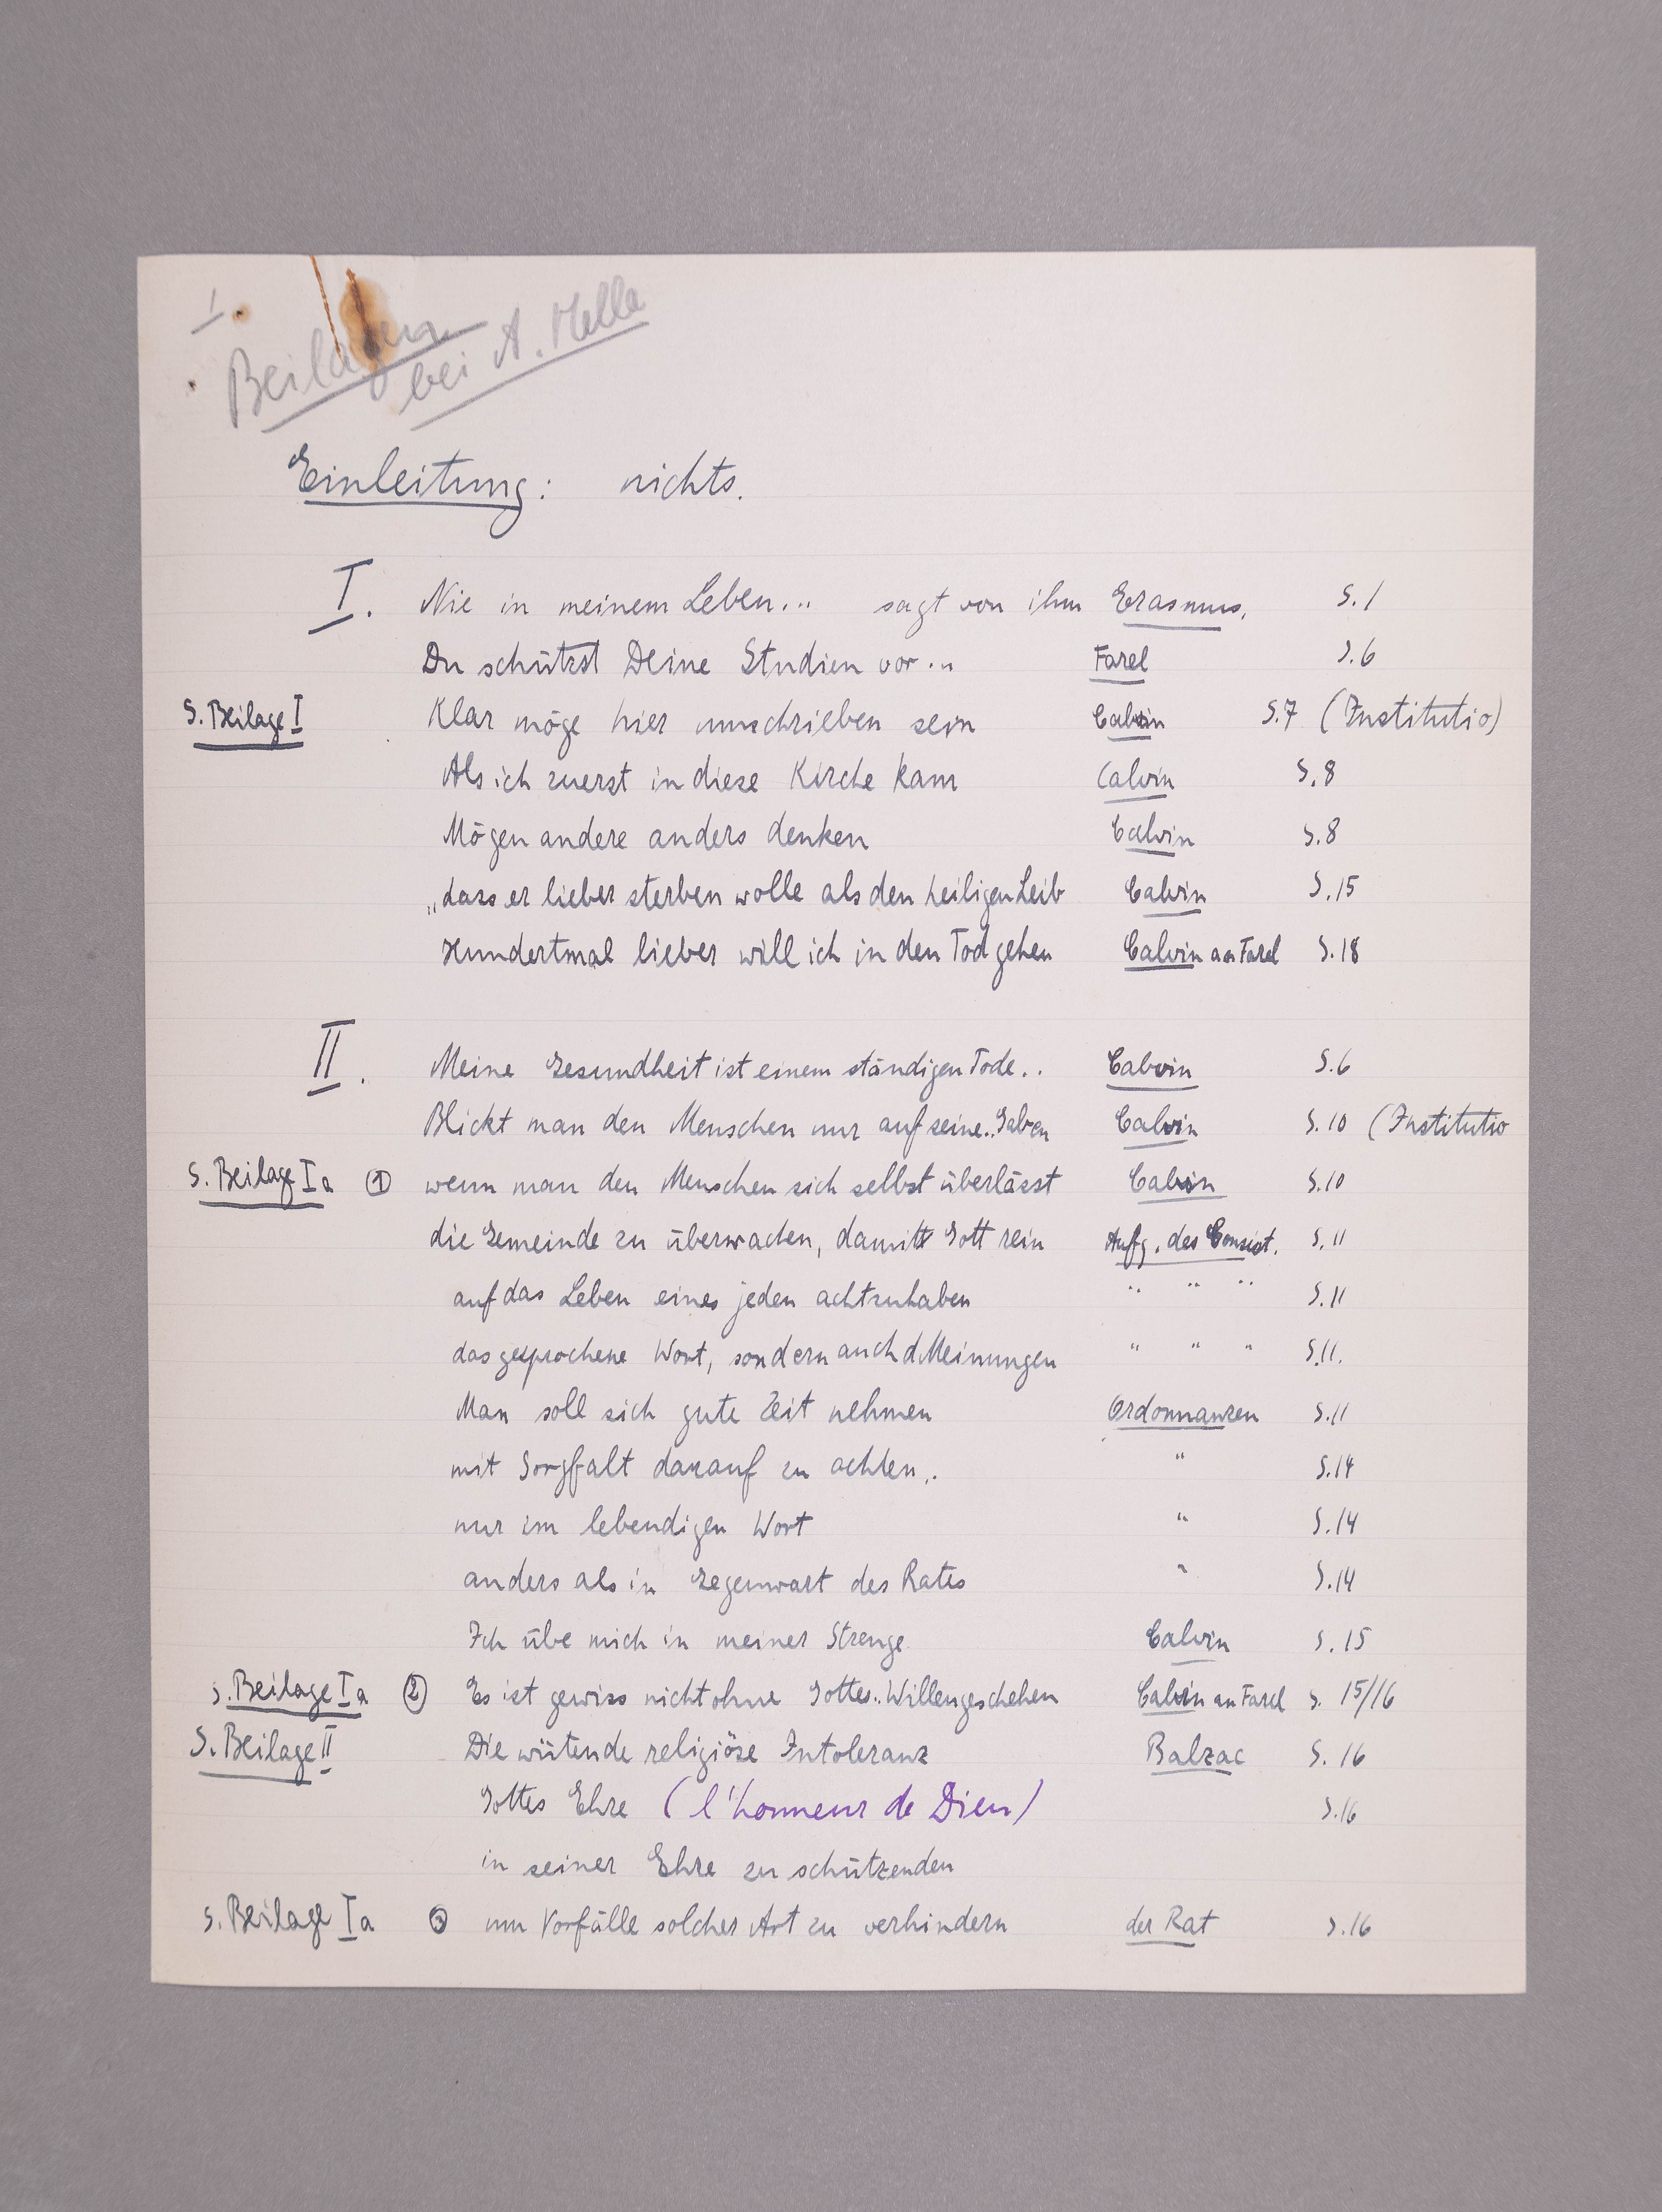 I.
Beilagen
bei A. Mella
Einleitung: nichts.
I. Nie in meinem Leben... sagt von ihm Erasmus, S.1
Du schützst Deine Studien vor... Farel S.6
S. Beilage I Klar möge hier umschrieben sein Calvin S.7 (Institutio)
Als ich zuerst in diese Kirche kam Calvin S.8
Mögen andere anders denken Calvin S.8
„dass er lieber sterben wolle als den heiligen Leib Calvin S.15
Hundertmal lieber will ich in den Tod gehen Calvin an Farel S.18
II. Meine Gesundheit ist einem ständigen Tode.. Calvin S.6
Blickt man den Menschen nur auf seine.. Gaben Calvin S.10 (Institutio
s. Beilage Ia ① wenn man den Menschen sich selbst überlässt Calvin S.10
die Gemeinde zu überwachen, damit Gott rein Aufg. des Consist. S.11
auf das Leben eines jeden achtzuhaben " " " S.11
das gesprochene Wort, sondern auch d Meinungen " " " S.11.
Man soll sich gute Zeit nehmen Ordonnanzen S.11
mit Sorgfalt darauf zu achten.. " S.14
nur im lebendigen Wort " S.14
anders als in Gegenwart des Rates " S.14
Ich übe mich in meiner Strenge Calvin S.15
s. Beilage Ia ② Es ist gewiss nicht ohne Gottes.. Willen geschehen Calvin an Farel S. 15/16
S. Beilage II Die wütende religiöse Intoleranz Balzac S. 16
Gottes Ehre (l'honneur de Dieu) S.16
in seiner Ehre zu schützenden
s. Beilage Ia ③ um Vorfälle solcher Art zu verhindern der Rat S.16